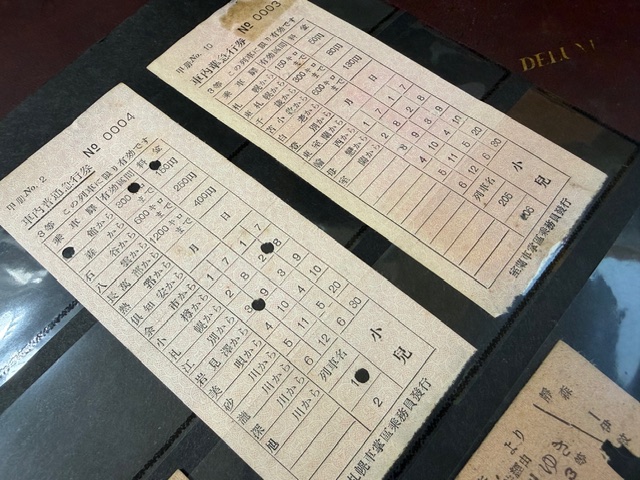 甲 No. 2
№ 0004
車内普通急行券
3等 この列車に限り有効です
乗車駅
有効区間
料金
200キロまで
600キロまで
1200キロまで
150円
250円
400円
函館から
森から
石谷から
八雲から
長万部から
熱郛から
倶知安から
余市から
小樽から
札幌から
江別から
岩見沢から
美唄から
砂川から
滝川から
深川から
旭川から
月
日
1 1 7
2 2 8
8 3 9
4 10 4 10
5 11 5 20
6 12 6 30
列車名
1
2
小児
札幌車掌区乗務員発行
甲 No. 10
№ 0003
車内準急行券
3等 この列車に限り有効です
乗車駅
有効区間
料金
150キロまで
300キロまで
600キロまで
50円
80円
130円
札幌から
東札幌から
千歳から
苫小牧から
白老から
登別から
東室蘭から
輪西から
母恋から
室蘭から
月
日
1 7 1 7
2 8 2 8
3 9
4 10 4 10
5 11 5 20
6 12 6 30
列車名
205
206
小児
室蘭車掌区乗務員発行
DELUX
森
伊
より
経由
ゆき
3等